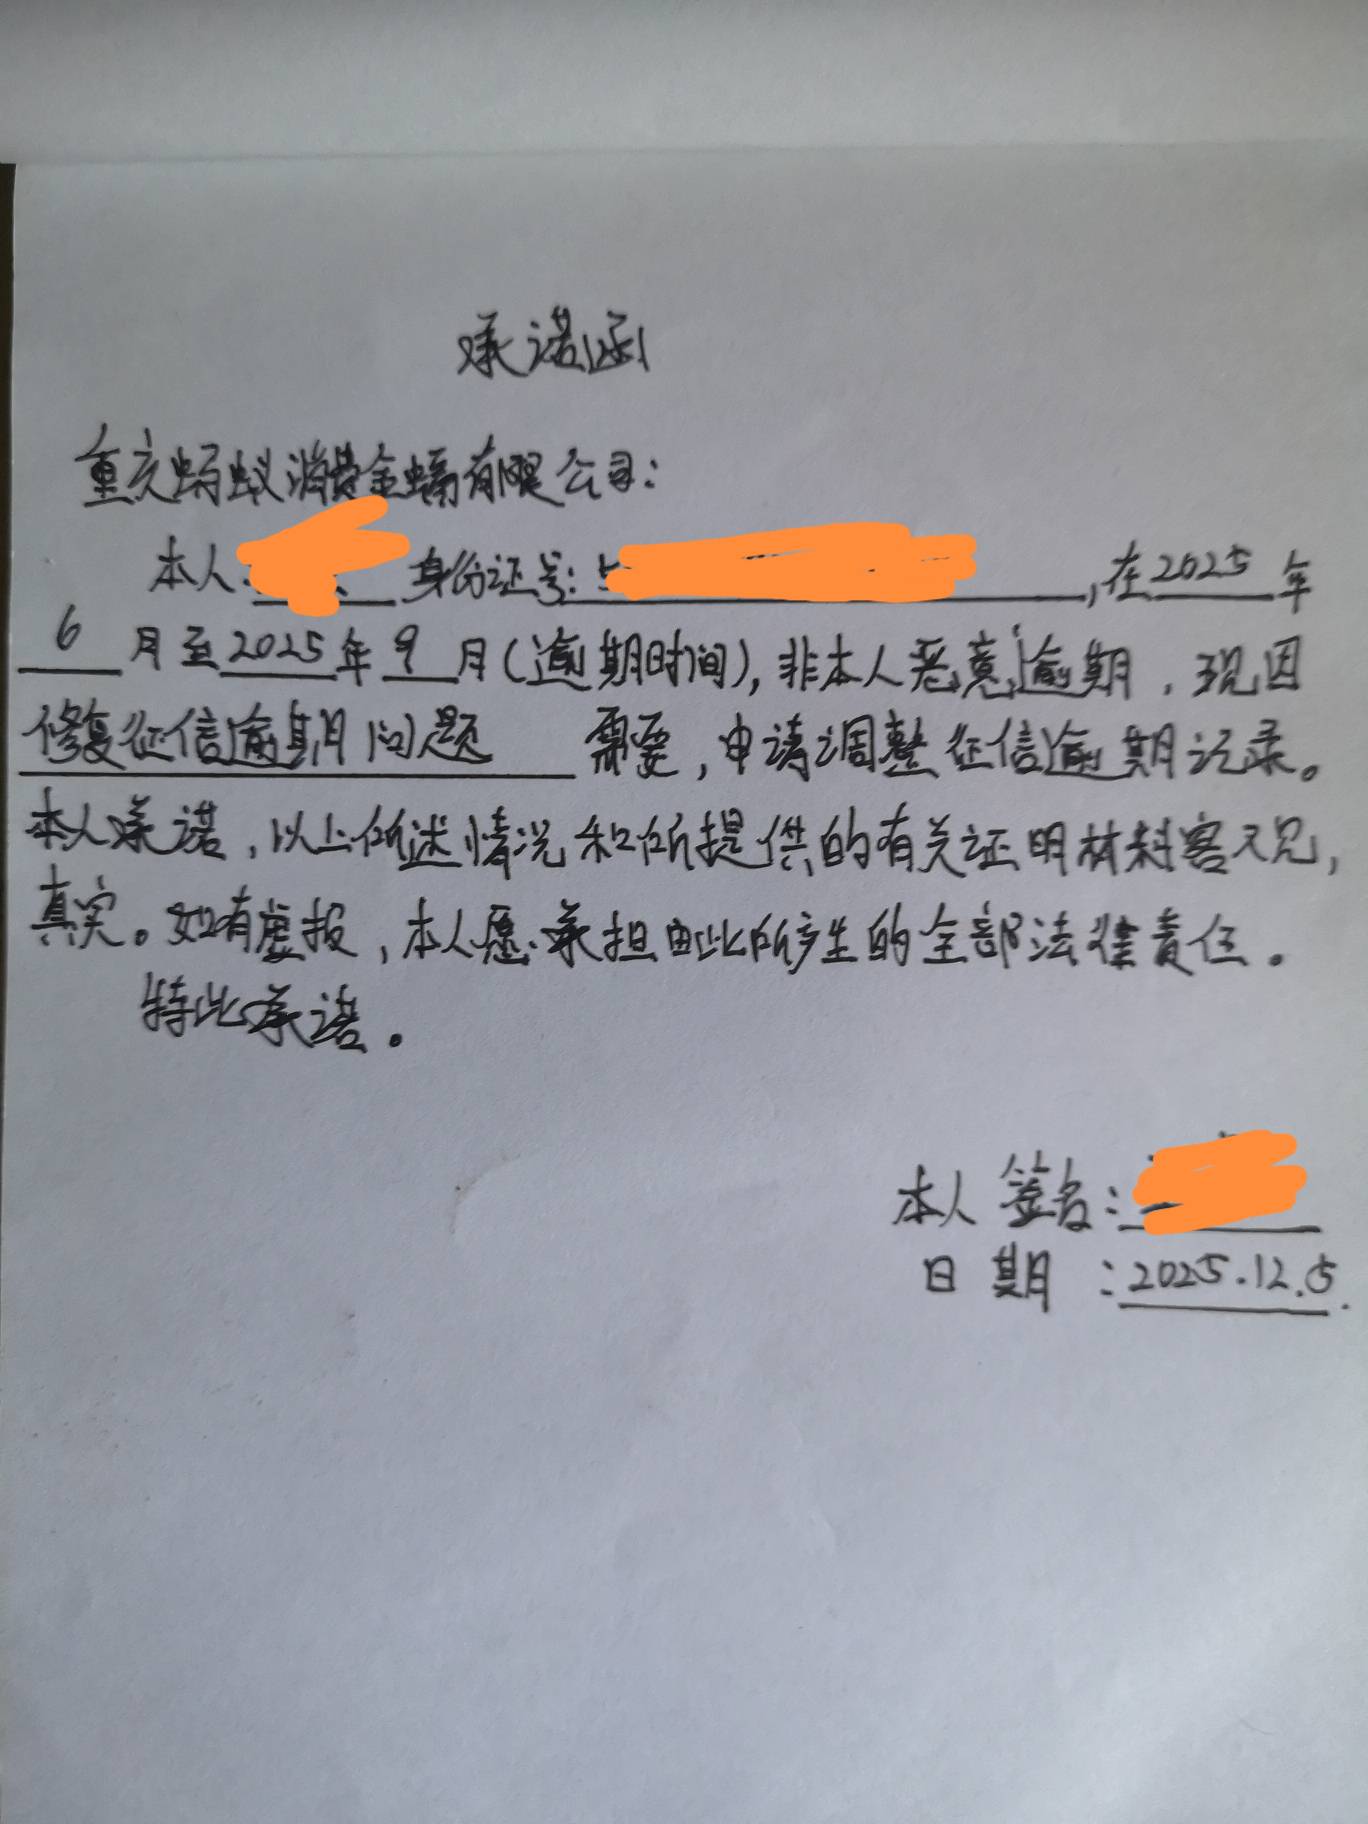 承诺函
重庆蚂蚁消费金融有限公司：
本人： 身份证号：5 ，在2025年
6月至2025年9月（逾期时间），非本人恶意逾期，现因
修复征信逾期问题 需要，申请调整征信逾期记录。
本人承诺，以上所述情况和所提供的有关证明材料客观，
真实。如有虚报，本人愿承担由此所产生的全部法律责任。
特此承诺。
本人签名：
日期：2025.12.5.